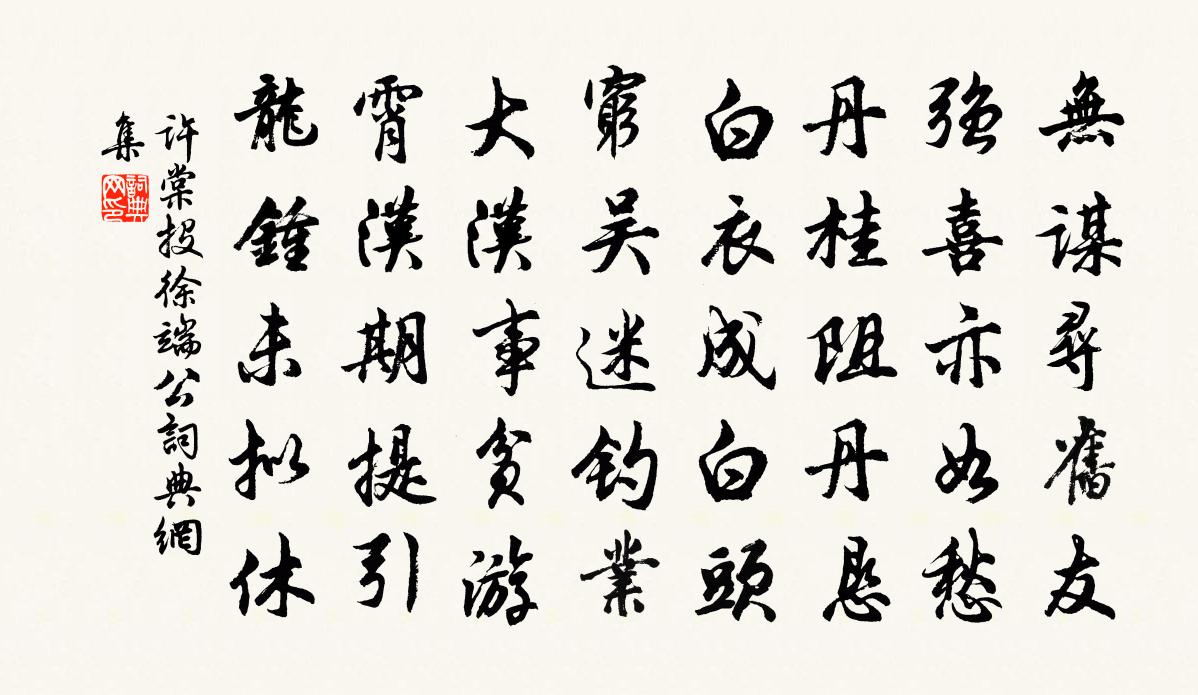 無謀尋舊友
強喜亦如愁
丹桂阻丹恳
白衣成白頭
窮吴迷釣業
大漠事貧游
霄漢期提引
龍鍾未拟休
許棠投徐端公詞典網
集
詞典网印